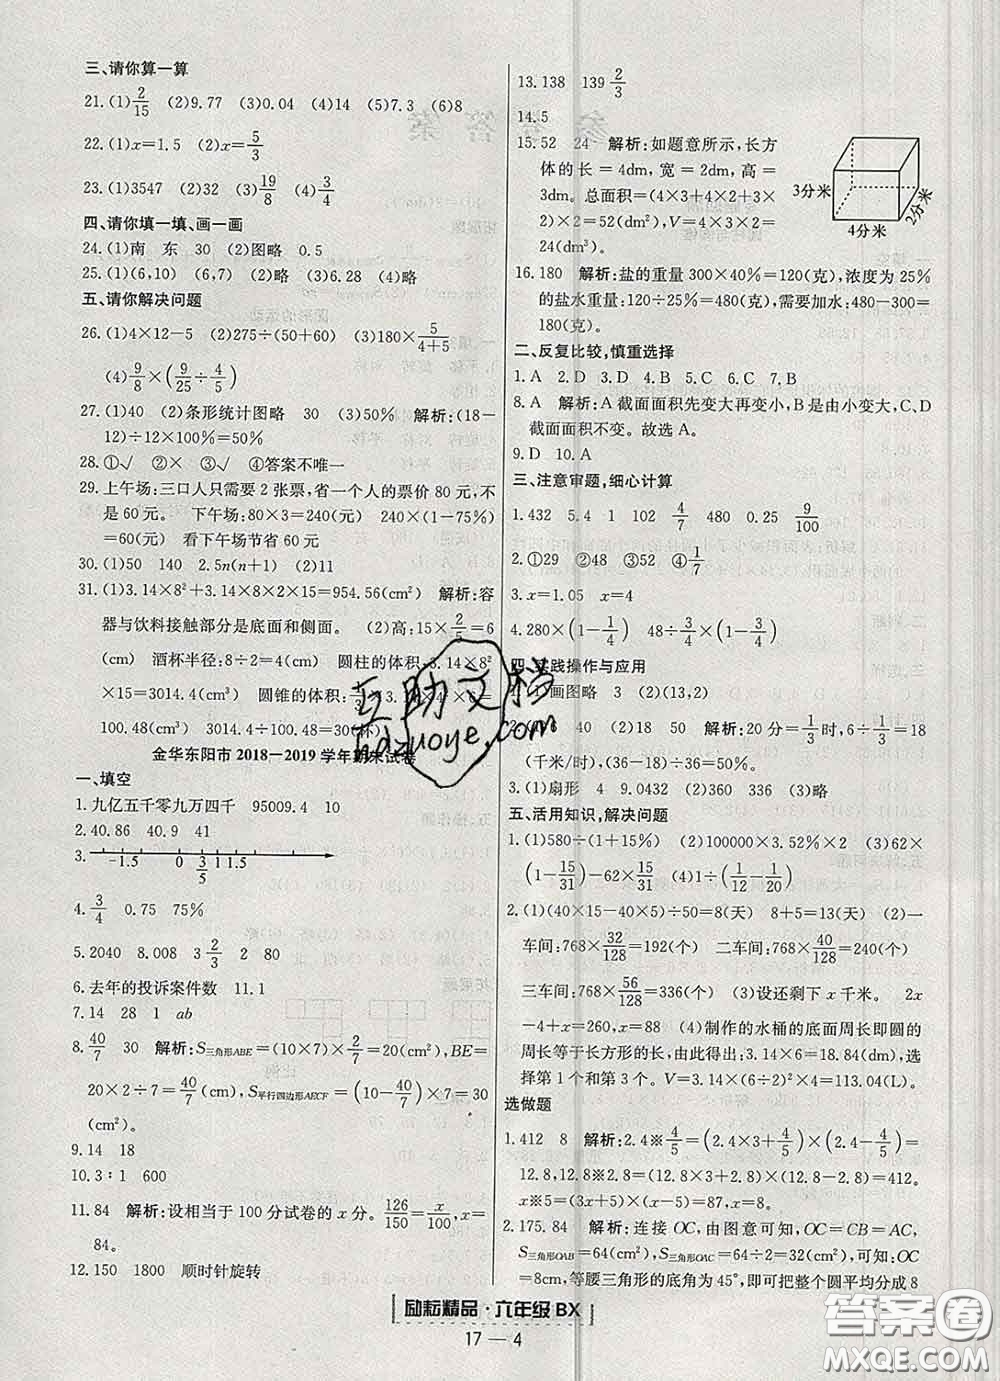 三、请你算一算
21.(1)2/15 (2)9.77 (3)0.04 (4)14 (5)7.3 (6)8
22.(1)x=1.5 (2)x=5/3
23.(1)3547 (2)32 (3)19/8 (4)3/4
四、请你填一填、画一画
24.(1)南 东 30 (2)图略 0.5
25.(1)(6,10) (6,7) (2)略 (3)6.28 (4)略
五、请你解决问题
26.(1)4×12-5 (2)275÷(50+60) (3)180×5/(4+5)
(4)9/8×(9/25÷4/5)
27.(1)40 (2)条形统计图略 30 (3)50% 解析:(18-
12)÷12×100%=50%
28.①√ ②× ③√ ④答案不唯一
29.上午场:三口人只需要 2 张票,省一个人的票价 80 元,不
是 60 元。 下午场:80×3=240(元) 240×(1-75%)
=60(元) 看下午场节省 60 元
30.(1)50 140 2.5n(n+1) (2)11
31.(1)3.14×8²+3.14×8×2×15=954.56(cm²) 解析:容
器与饮料接触部分是底面和侧面。 (2)高:15×2/5=6
(cm) 酒杯半径:8÷2=4(cm) 圆柱的体积:3.14×8²
×15=3014.4(cm³) 圆锥的体积:1/3×3.14×4²×6=
100.48(cm³) 3014.4÷100.48=30(杯)
金华东阳市 2018—2019 学年期末试卷
一、填空
1.九亿五千零九万四千 95009.4 10
2.40.86 40.9 41
3. -1.5 0 3/5 1 1.5
4.3/4 0.75 75%
5.2040 8.008 3 2/3 2 80
6.去年的投诉案件数 11.1
7.14 28 1 ab
8.40/7 30 解析:S三角形ABE=(10×7)×2/7=20(cm²),BE=
20×2÷7=40/7(cm),S平行四边形AECF=(10-40/7)×7=30
(cm²)。
9.14 18
10.3∶1 600
11.84 解析:设相当于 100 分试卷的 x 分。126/150=x/100,x=
84。
12.150 1800 顺时针旋转
13.138 139 2/3
14.5
15.52 24 解析:如题意所示,长方
体的长=4dm,宽=2dm,高=
3dm。总面积=(4×3+4×2+3×
2)×2=52(dm²),V=4×3×2=
24(dm³)
3分米
4分米
2分米
16.180 解析:盐的重量 300×40%=120(克),浓度为 25%
的盐水重量:120÷25%=480(克),需要加水:480-300=
180(克)。
二、反复比较,慎重选择
1.A 2.D 3.A 4.B 5.C 6.C 7.B
8.A 解析:A 截面面积先变大再变小,B 是由小变大,C、D
截面面积不变。故选 A。
9.D 10.A
三、注意审题,细心计算
1.432 5.4 1 102 4/7 480 0.25 9/100
2.①29 ②48 ③52 ④1/7
3.x=1.05 x=4
4.280×(1-1/4) 48÷3/4×(1-3/4)
四、实践操作与应用
1.(1)画图略 3 (2)(13,2)
40 (2)50 解析:20 分=1/3时,6÷1/3=18
(千米/时)
3.(1)扇形 4 9.0432 (2)360 336 (3)略
五、活用知识,解决问题
1.(1)580÷(1+15%) (2)100000×3.52%×2 (3)62×
(1-15/31)-62×15/31 (4)1÷(1/12-1/20)
2.(1)(40×15-40×5)÷50=8(天) 8+5=13(天) (2)一
车间:768×32/128=192(个) 二车间:768×40/128=240(个)
三车间:768×56/128=336(个) (3)设还剩下 x 千米。 2x
-4+x=260,x=88 (4)制作的水桶的底面周长即圆的
周长等于长方形的长,由此得出:3.14×6=18.84(dm),选
择第 1 个和第 3 个。V=3.14×(6÷2)²×4=113.04(L)
选做题
1.412 8 解析:2.4※4/5=(2.4×3+4/5)×(2.4-4/5)=
12.8,12.8※2.8=(12.8×3+2.8)×(12.8-2.8)=412,
x※5=(3x+5)×(x-5)=87,x=8。
2.175.84 解析:连接 OC,由图意可知:OC=CB=AC,
S三角形OAB=64(cm²),S三角形OAC=64÷2=32(cm²),可知:OC
=8cm,等腰三角形的底角为 45°,即可把整个圆平均分成 8
励耘精品·六年级 BX
17—4
互助文档
hdzuoye.com
答案圈
MXQE.COM